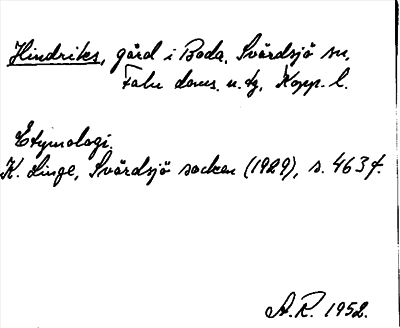 Hindriks, gård i Boda, Svärdsjö sn,
Falu doms. o. tg, Kopp. l.
Etymologi.
K. Linge, Svärdsjö socken (1929), s. 463 f.
A.R. 1952.